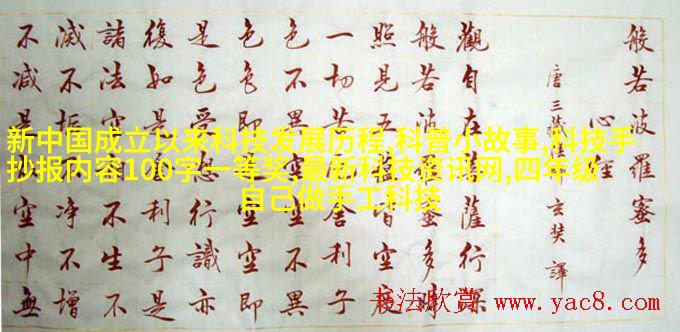 般若波羅蜜多
心經
唐三藏玄奘譯
觀自在薩行深
般若波蜜多時
照見五皆空度
一切苦舍利子
色不異空不異
色色即空空即
是色受行識亦
復如是利子是
諸法空不生不
滅不垢淨不增
不減是空中無
新中国成立以来科技发展历程,科普小故事,科技手
抄报内容100字一等奖,最新科技资讯网,四年级
自己做手工科技
书法欣赏 www.yac8.com